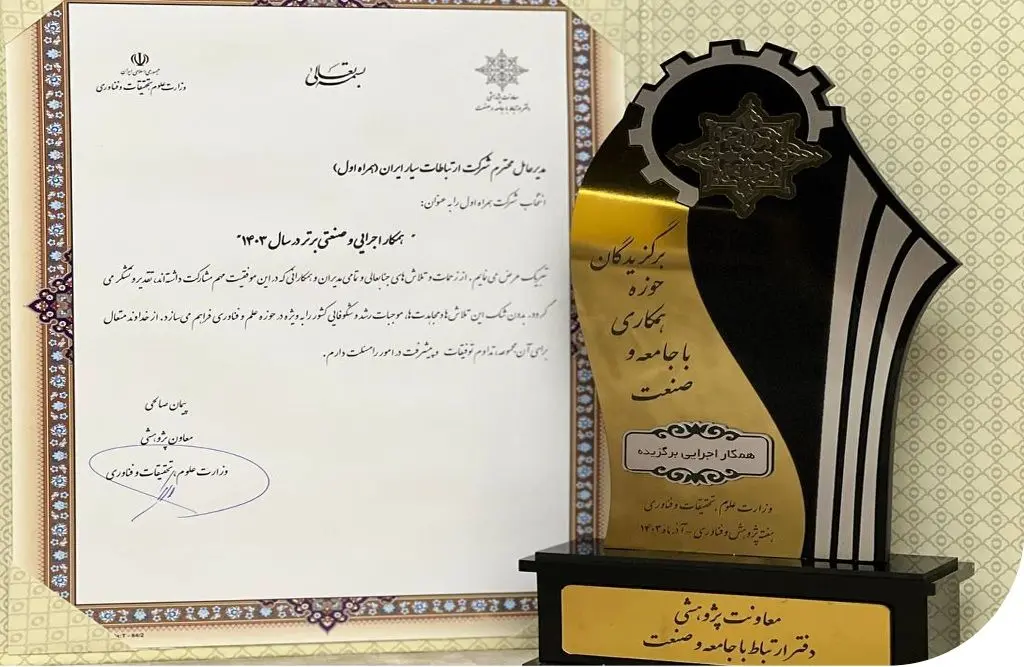 جمهوری اسلامی ایران
وزارت علوم، تحقیقات و فناوری
بسمه تعالی
معاونت پژوهشی
دفتر ارتباط با جامعه و صنعت
مدیرعامل محترم شرکت ارتباطات سیار ایران (همراه اول)
انتخاب شرکت همراه اول را به عنوان:
"همکار اجرایی و صنعتی برتر در سال ۱۴۰۳"
تبریک عرض می نمایم. از زحمات و تلاش های جنابعالی و تمامی مدیران و همکارانی که در این موفقیت مهم مشارکت داشته‌اند، تقدیر و تشکر می
گردد. بدون شک این تلاش‌ها و مجاهدت‌ها، موجبات رشد و شکوفایی کشور را به ویژه در حوزه علم و فناوری فراهم می‌سازد. از خداوند متعال
برای آن مجموعه، تداوم توفیقات و پیشرفت در امور را مسئلت دارم.
پیمان صالحی
معاون پژوهشی
وزارت علوم، تحقیقات و فناوری
برگزیدگان
حوزه
همکاری
با جامعه و
صنعت
همکار اجرایی برگزیده
وزارت علوم، تحقیقات و فناوری
هفته پژوهش و فناوری - آذرماه ۱۴۰۳
معاونت پژوهشی
دفتر ارتباط با جامعه و صنعت